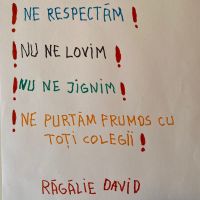 ! NE RESPECTĂM !
! NU NE LOVIM !
! NU NE JIGNIM !
! NE PURTĂM FRUMOS CU
TOȚI COLEGII !
RĂGĂLIE DAVID